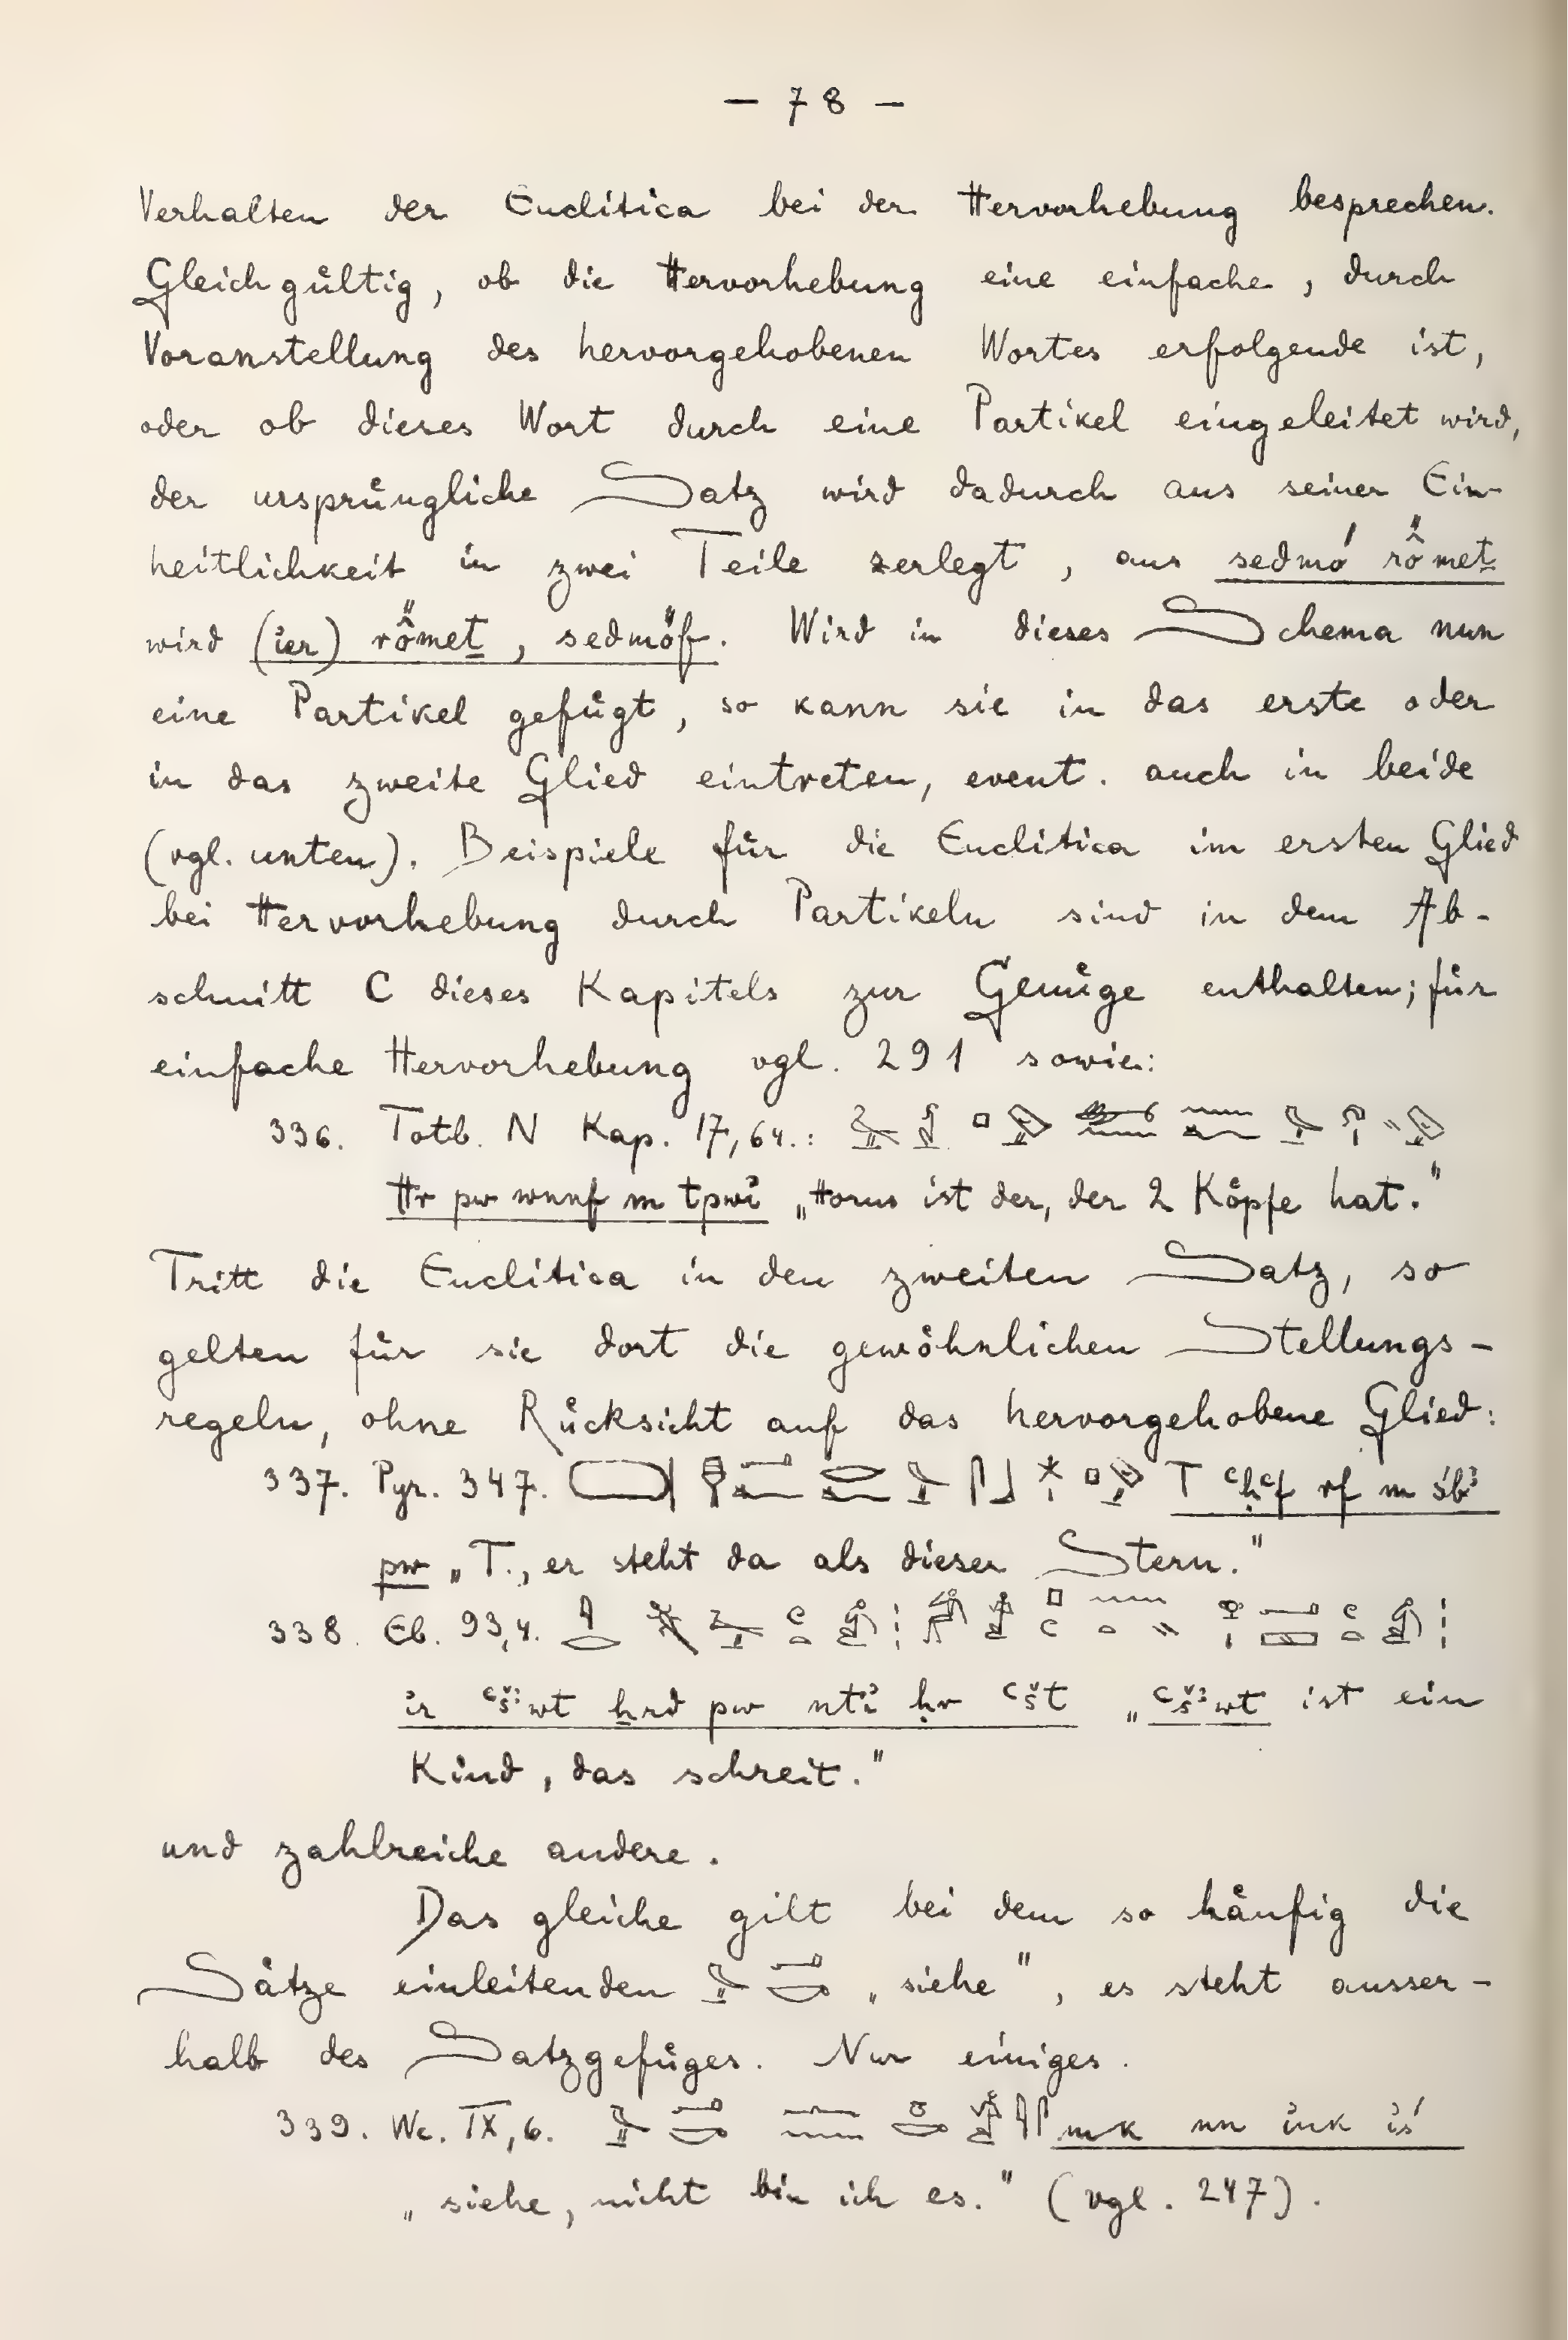 — 78 —
Verhalten der Enclitica bei der Hervorhebung besprechen.
Gleichgültig, ob die Hervorhebung eine einfache, durch
Voranstellung des hervorgehobenen Wortes erfolgende ist,
oder ob dieses Wort durch eine Partikel eingeleitet wird,
der ursprüngliche Satz wird dadurch aus seiner Ein-
heitlichkeit in zwei Teile zerlegt, aus sedmó rômet
wird (ier) rômet, sedmóf. Wird in dieses Schema nun
eine Partikel gefügt, so kann sie in das erste oder
in das zweite Glied eintreten, event. auch in beide
(vgl. unten). Beispiele für die Enclitica im ersten Glied
bei Hervorhebung durch Partikeln sind in dem Ab-
schnitt C dieses Kapitels zur Genüge enthalten; für
einfache Hervorhebung vgl. 291 sowie:
336. Totb. N Kap. 17,64.:
Ḥr pw wnnf m tpwï „Horus ist der, der 2 Köpfe hat.“
Tritt die Enclitica in den zweiten Satz, so
gelten für sie dort die gewöhnlichen Stellungs-
regeln, ohne Rücksicht auf das hervorgehobene Glied:
337. Pyr. 347. T ꜥḥꜥf rf m śbꜣ
pw „T., er steht da als dieser Stern.“
338. Eb. 93,4.
ir ꜥšꜣwt ẖrd pw ntï ḥr ꜥšt „ꜥšꜣwt ist ein
Kind, das schreit.“
und zahlreiche andere.
Das gleiche gilt bei dem so häufig die
Sätze einleitenden „siehe“, es steht ausser-
halb des Satzgefüges. Nur einiges.
339. We. IX,6. mk nn ink iś
„siehe, nicht bin ich es.“ (vgl. 247).